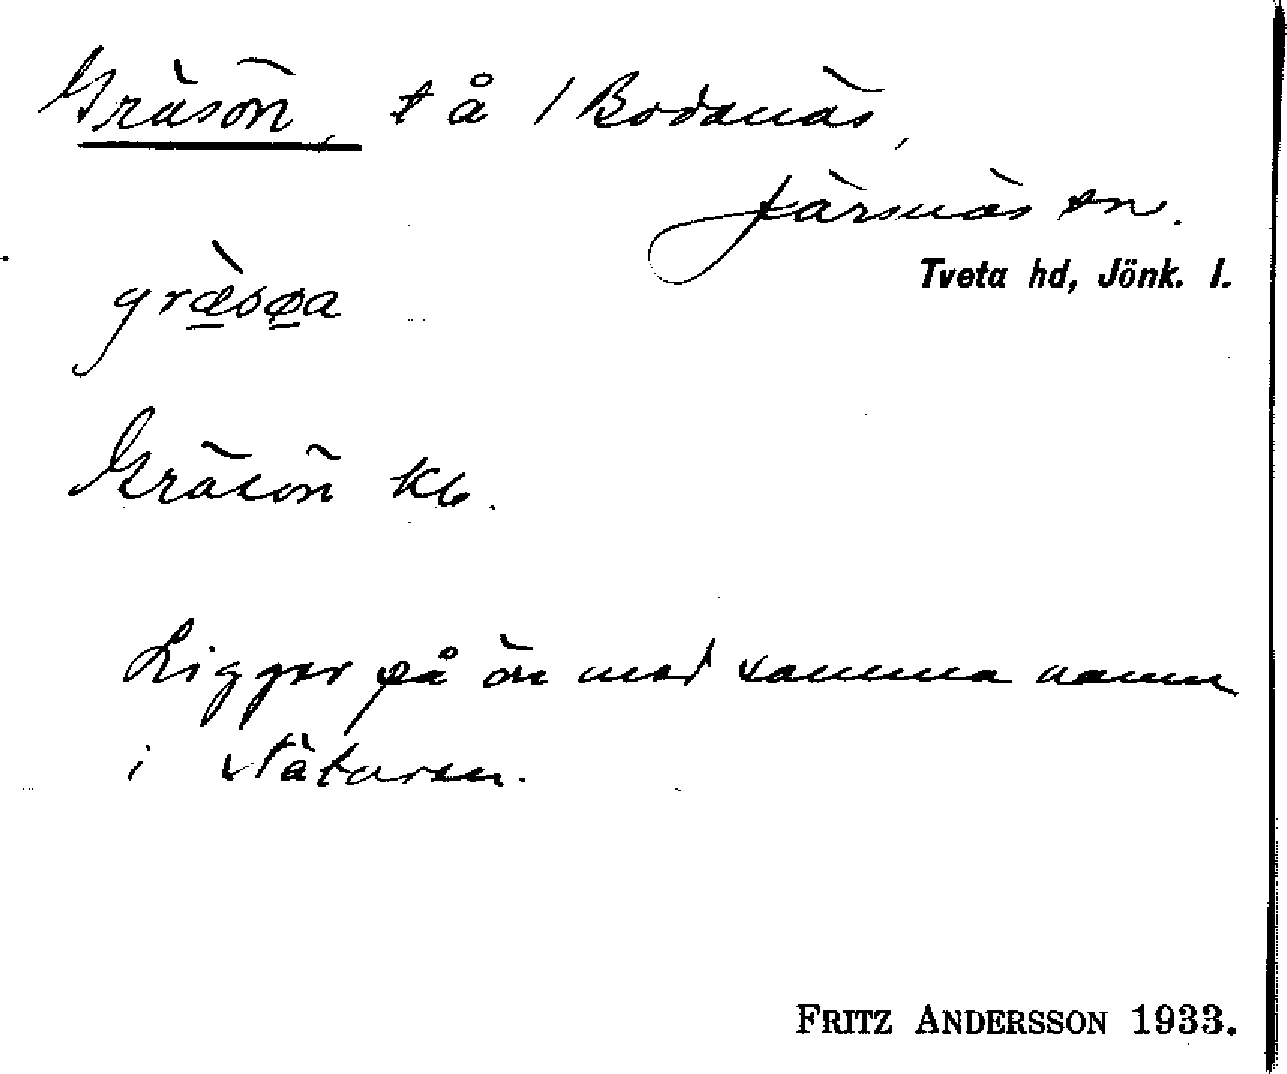 Gräsön, t å / Bodanäs,
Järsnäs sn.
Tveta hd, Jönk. l.
græ̀søa
Gräsön kb.
Ligger på ön med samma namn
i Nätaren.
FRITZ ANDERSSON 1933.